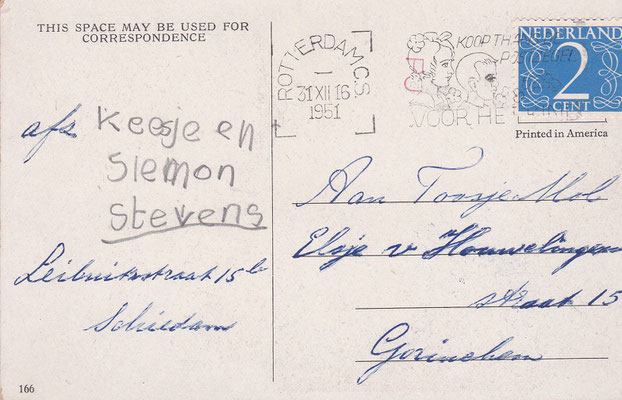 THIS SPACE MAY BE USED FOR
CORRESPONDENCE
ROTTERDAM C.S.
I
31 XII 16
1951
KOOP
VOOR HET KIND
NEDERLAND
2
CENT
Printed in America
afz
Keesje en
Siemon
Stevens
Leibnitzstraat 15 b
Schiedam
Aan Toosje Mol
Elsje v Houwelingen
straat 15
Gorinchem
166